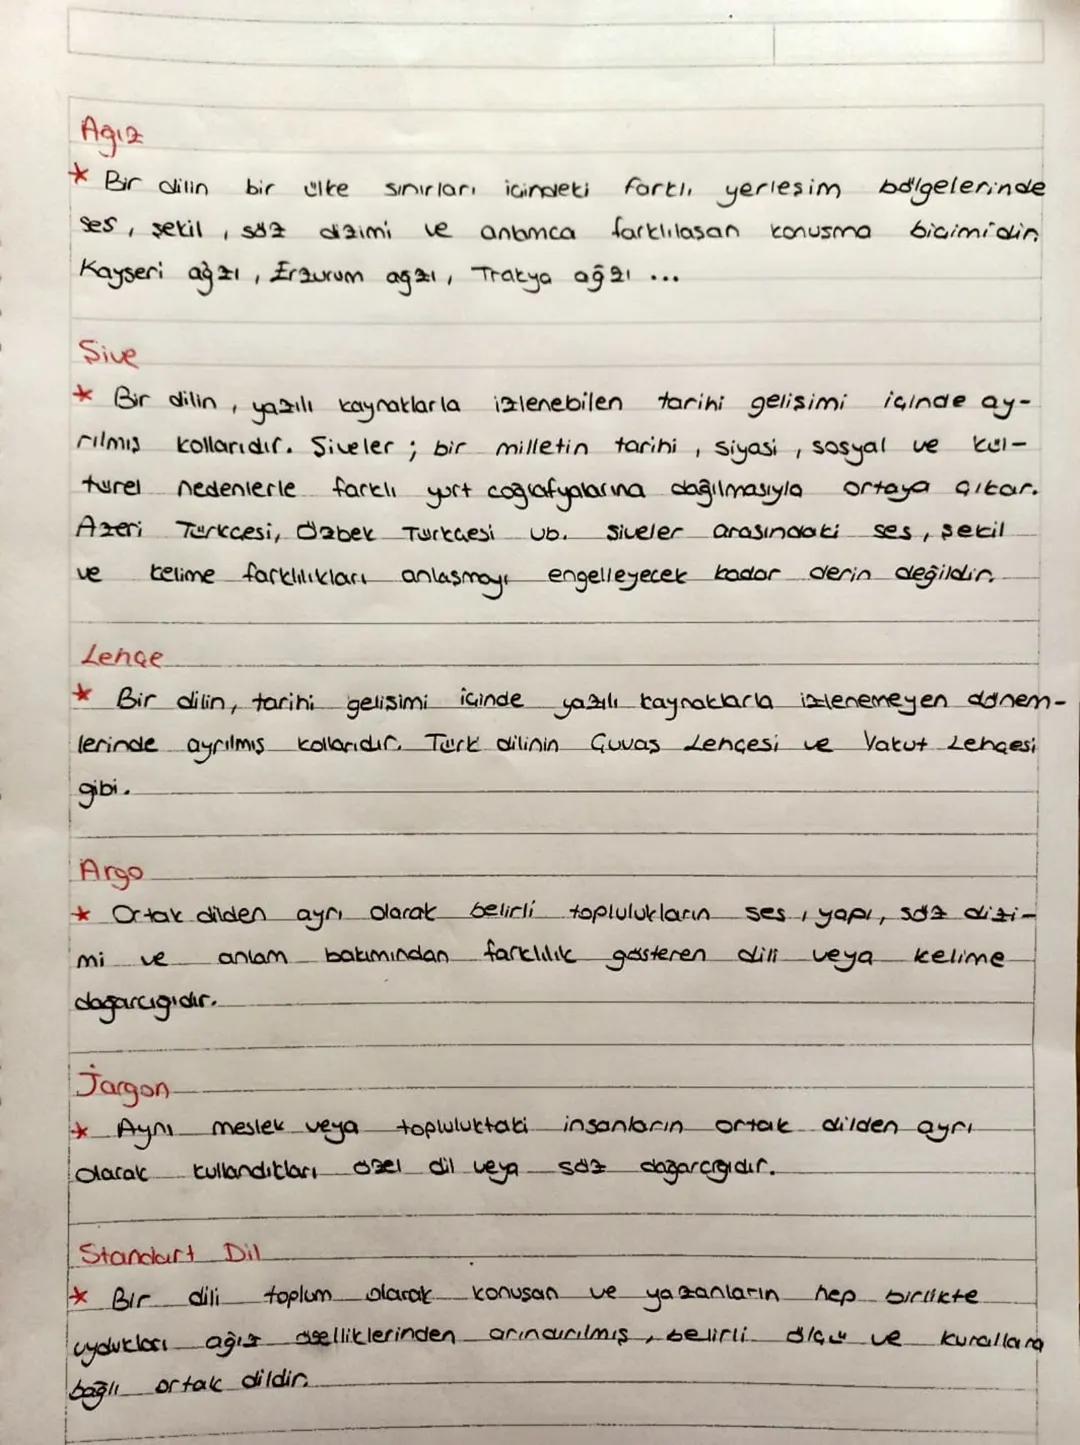 Ağız
* Bir dilin bir ülke sınırları içindeki farklı yerleşim bölgelerinde
ses, şekil, söz dizimi ve anlamca farklılaşan konuşma biçimidir.
Kayseri ağzı, Erzurum ağzı, Trakya ağzı ...
Şive
* Bir dilin, yazılı kaynaklarla izlenebilen tarihi gelişimi içinde ay-
rılmış kollarıdır. Şiveler; bir milletin tarihi, siyasi, sosyal ve kül-
türel nedenlerle farklı yurt coğrafyalarına dağılmasıyla ortaya çıkar.
Azeri Türkçesi, Özbek Türkçesi vb. Şiveler arasındaki ses, şekil
ve kelime farklılıkları anlaşmayı engelleyecek kadar derin değildir.
Lehçe
* Bir dilin, tarihi gelişimi içinde yazılı kaynaklarla izlenemeyen dönem-
lerinde ayrılmış kollarıdır. Türk dilinin Çuvaş Lehçesi ve Yakut Lehçesi
gibi.
Argo
* Ortak dilden ayrı olarak belirli toplulukların ses, yapı, söz dizi-
mi ve anlam bakımından farklılık gösteren dili veya kelime
dağarcığıdır.
Jargon
* Aynı meslek veya topluluktaki insanların ortak dilden ayrı
olarak kullandıkları özel dil veya söz dağarcığıdır.
Standart Dil
* Bir dili toplum olarak konuşan ve yazanların hep birlikte
uydukları ağız özelliklerinden arındırılmış, belirli ölçü ve kurallara
bağlı ortak dildir.